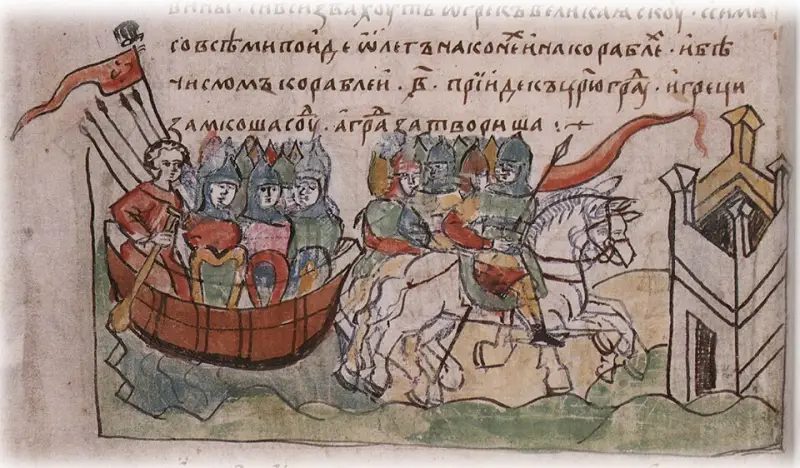 вины . си вси звахоуть ѡ грекъ великаѧ скоу . с сими
со всѣми поиде ѡлегъ на конеи и на корабле . и бѣ
числомъ кораблеи . в҃ . прїиде къ црю граⷣу . и греци
замкоша соуⷣ . а граⷣ затвориша :